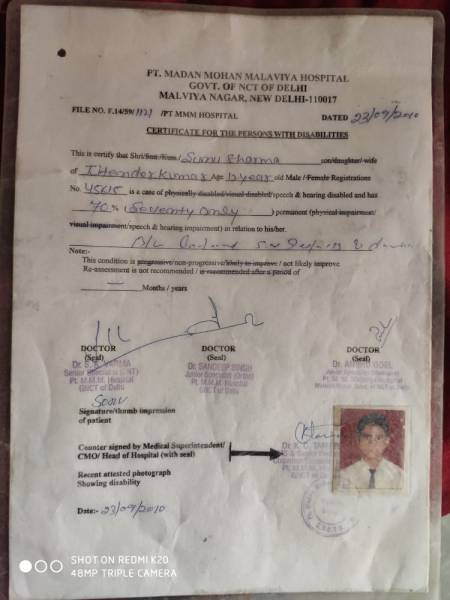 PT. MADAN MOHAN MALAVIYA HOSPITAL
GOVT. OF NCT OF DELHI
MALVIYA NAGAR, NEW DELHI-110017
FILE NO. F.14/59/1121 /PT MMM HOSPITAL DATED 23/09/2010
CERTIFICATE FOR THE PERSONS WITH DISABILITIES
This is certify that Shri/Smt./Kum./ Sharma son/daughter/wife
of Kumar Age year old Male /Female Registrations
No. is a case of physically disabled/visual disabled/speech & hearing disabled and has
70% (Seventy Only) permanent (physical impairment/
visual impairment/speech & hearing impairment) in relation to his/her.
B/L
Note:-
This condition is progressive/non-progressive/likely to improve / not likely improve
Re-assessment is not recommended / is recommended after a period of
Months / years
DOCTOR DOCTOR DOCTOR
(Seal) (Seal) (Seal)
Dr. S. K. VARMA Dr. SANDEEP SINGH Dr. ARVIND GOEL
Senior Specialist (ENT)
Pt. M.M.M. Hospital Pt. M.M.M. Hospital
GNCT of Delhi GNCT of Delhi
Signature/thumb impression
of patient
Counter signed by Medical Superintendent/
CMO/ Head of Hospital (with seal)
Recent attested photograph
Showing disability
Date:- 23/09/2010
SHOT ON REDMI K20
48MP TRIPLE CAMERA